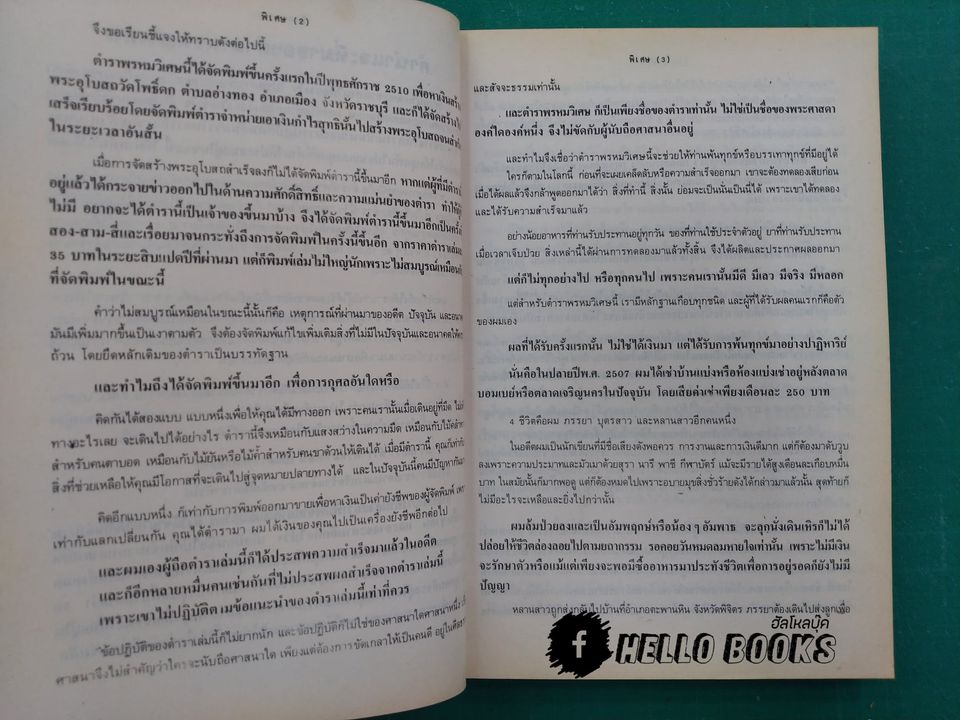 พิเศษ (2)
จึงขอเรียนชี้แจงให้ทราบดังต่อไปนี้
ตำราพรหมวิเศษนี้ได้จัดพิมพ์ขึ้นครั้งแรกในปีพุทธศักราช 2510 เพื่อหาเงินสร้าง
พระอุโบสถวัดโพธิ์ดก ตำบลอ่างทอง อำเภอเมือง จังหวัดราชบุรี และก็ได้จัดสร้าง
เสร็จเรียบร้อยโดยจัดพิมพ์ตำราจำหน่ายเอาเงินกำไรสุทธินั้นไปสร้างพระอุโบสถจนสำเร็จ
ในระยะเวลาอันสั้น
เมื่อการจัดสร้างพระอุโบสถสำเร็จลงก็ไม่ได้จัดพิมพ์ตำรานี้ขึ้นมาอีก หากแต่ผู้ที่มีตำรา
อยู่แล้วได้กระจายข่าวออกไปในด้านความศักดิ์สิทธิ์และความแม่นยำของตำรา ทำให้
ไม่มี อยากจะได้ตำรานี้เป็นเจ้าของขึ้นมาบ้าง จึงได้จัดพิมพ์ตำรานี้ขึ้นมาอีกเป็นครั้ง
สอง-สาม-สี่และเรื่อยมาจนกระทั่งถึงการจัดพิมพ์ในครั้งนี้ขึ้นอีก จากราคาตำราเล่มละ
35 บาทในระยะสิบแปดปีที่ผ่านมา แต่ก็พิมพ์เล่มไม่ใหญ่นักเพราะไม่สมบูรณ์เหมือน
ที่จัดพิมพ์ในขณะนี้
คำว่าไม่สมบูรณ์เหมือนในขณะนี้นั้นก็คือ เหตุการณ์ที่ผ่านมาของอดีต ปัจจุบัน และ
มันมีเพิ่มมากขึ้นเป็นเงาตามตัว จึงต้องจัดพิมพ์แก้ไขเพิ่มเติมสิ่งที่ไม่มีในปัจจุบันและอนาคตให้
ถ้วน โดยยึดหลักเดิมของตำราเป็นบรรทัดฐาน
และทำไมถึงได้จัดพิมพ์ขึ้นมาอีก เพื่อการกุศลอันใดหรือ
คิดกันได้สองแบบ แบบหนึ่งเพื่อให้คุณได้มีทางออก เพราะคนเรานั้นเมื่อเดินอยู่ที่มืด
ทางอะไรเลย จะเดินไปได้อย่างไร ตำรานี้จึงเหมือนกับแสงสว่างในความมืด เหมือนกับไม้
สำหรับคนตาบอด เหมือนกับไม้ยันหรือไม้ค้ำสำหรับคนขาด้วนให้เดินได้ เมื่อมีตำรานี้ คุณก็เท่ากับ
สิ่งที่ช่วยเหลือให้คุณมีโอกาสที่จะเดินไปสู่จุดหมายปลายทางได้ และในปัจจุบันนี้คนมีปัญหากัน
คิดอีกแบบหนึ่ง ก็เท่ากับการพิมพ์ออกมาขายเพื่อหาเงินเป็นค่ายังชีพของผู้จัดพิมพ์
เท่ากับแลกเปลี่ยนกัน คุณได้ตำรามา ผมได้เงินของคุณไปเป็นเครื่องยังชีพอีกต่อไป
และผมเองผู้ถือตำราเล่มนี้ก็ได้ประสพความสำเร็จมาแล้วในอดีต
และก็อีกหลายหมื่นคนเช่นกันที่ไม่ประสพผลสำเร็จจากตำราเล่มนี้
เพราะเขาไม่ปฏิบัติตามข้อแนะนำของตำราเล่มนี้เท่าที่ควร
ข้อปฏิบัติของตำราเล่มนี้ก็ไม่ยากนัก และข้อปฏิบัติก็ไม่ใช่ของศาสนาใดศาสนาหนึ่ง
ศาสนาจึงไม่สำคัญว่าใครจะนับถือศาสนาใด เพียงแต่ต้องการขัดเกลาให้เป็นคนดี อยู่ในศีล
พิเศษ (3)
และสัจจะธรรมเท่านั้น
และตำราพรหมวิเศษ ก็เป็นเพียงชื่อของตำราเท่านั้น ไม่ใช่เป็นชื่อของพระศาสดา
องค์ใดองค์หนึ่ง จึงไม่ขัดกับผู้นับถือศาสนาอื่นอยู่
และทำไมจึงเชื่อว่าตำราพรหมวิเศษนี้จะช่วยให้ท่านพ้นทุกข์หรือบรรเทาทุกข์ที่มีอยู่ได้
ใครก็ตามในโลกนี้ ก่อนที่จะเผยเคล็ดลับหรือความสำเร็จออกมา เขาจะต้องทดลองเสียก่อน
เมื่อได้ผลแล้วจึงกล้าพูดออกมาได้ว่า สิ่งที่ทำนี้ สิ่งนั้น ย่อมจะเป็นนั่นเป็นนี่ได้ เพราะเขาได้ทดลอง
และได้รับความสำเร็จมาแล้ว
อย่างน้อยอาหารที่ท่านรับประทานอยู่ทุกวัน ของที่ท่านใช้ประจำตัวอยู่ ยาที่ท่านรับประทาน
เมื่อเวลาเจ็บป่วย สิ่งเหล่านี้ได้ผ่านการทดลองมาแล้วทั้งสิ้น จึงได้ผลิตและประกาศผลออกมา
แต่ก็ไม่ทุกอย่างไป หรือทุกคนไป เพราะคนเรานั้นมีดี มีเลว มีจริง มีหลอก
แต่สำหรับตำราพรหมวิเศษนี้ เรามีหลักฐานเกือบทุกชนิด และผู้ที่ได้รับผลคนแรกก็คือตัว
ของผมเอง
ผลที่ได้รับครั้งแรกนั้น ไม่ใช่ได้เงินมา แต่ได้รับการพ้นทุกข์มาอย่างปาฏิหาริย์
นั่นคือในปลายปีพ.ศ. 2507 ผมได้เช่าบ้านแบ่งหรือห้องแบ่งเช่าอยู่หลังตลาด
บอมเบย์หรือตลาดเจริญนครในปัจจุบัน โดยเสียค่าเช่าเพียงเดือนละ 250 บาท
4 ชีวิตคือผม ภรรยา บุตรสาว และหลานสาวอีกคนหนึ่ง
ในอดีตผมเป็นนักเขียนที่มีชื่อเสียงดังพอควร การงานและการเงินดีมาก แต่ก็ต้องมาดับวูบ
ลงเพราะความประมาทและมัวเมาด้วยสุรา นารี พาชี กีฬาบัตร์ แม้จะมีรายได้สูงเดือนละเกือบหมื่น
บาท ในสมัยนั้นก็มากพอดู แต่ก็ต้องหมดไปเพราะอบายมุขสิ่งชั่วร้ายดังได้กล่าวมาแล้วนั้น สุดท้ายก็
ไม่มีอะไรจะเหลือและยิ่งไปกว่านั้น
ผมล้มป่วยลงและเป็นอัมพฤกษ์หรือน้อง ๆ อัมพาธ จะลุกนั่งเดินเหิรก็ไม่ได้
ปล่อยให้ชีวิตล่องลอยไปตามยถากรรม รอคอยวันหมดลมหายใจเท่านั้น เพราะไม่มีเงิน
จะรักษาตัวหรือแม้แต่เพียงจะพอมีซื้ออาหารมาประทังชีวิตเพื่อการอยู่รอดก็ยังไม่มี
ปัญญา
หลานสาวถูกส่งกลับไปบ้านที่อำเภอตะพานหิน จังหวัดพิจิตร ภรรยาต้องเดินไปส่งลูกเพื่อ
ฮัลโหลบุ๊ค
f HELLO BOOKS